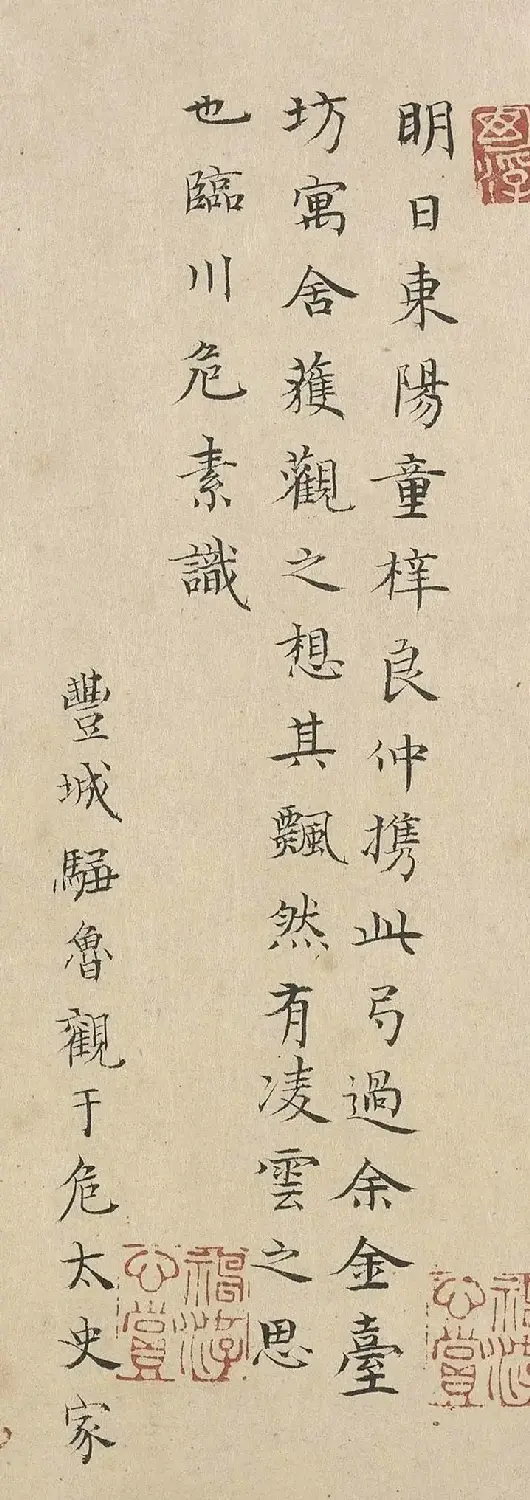 眀日東陽童梓良仲携此弓過余金臺
坊寓舍獲觀之想其飄然有凌雲之思
也臨川危素識
豐城騶魯觀于危太史家